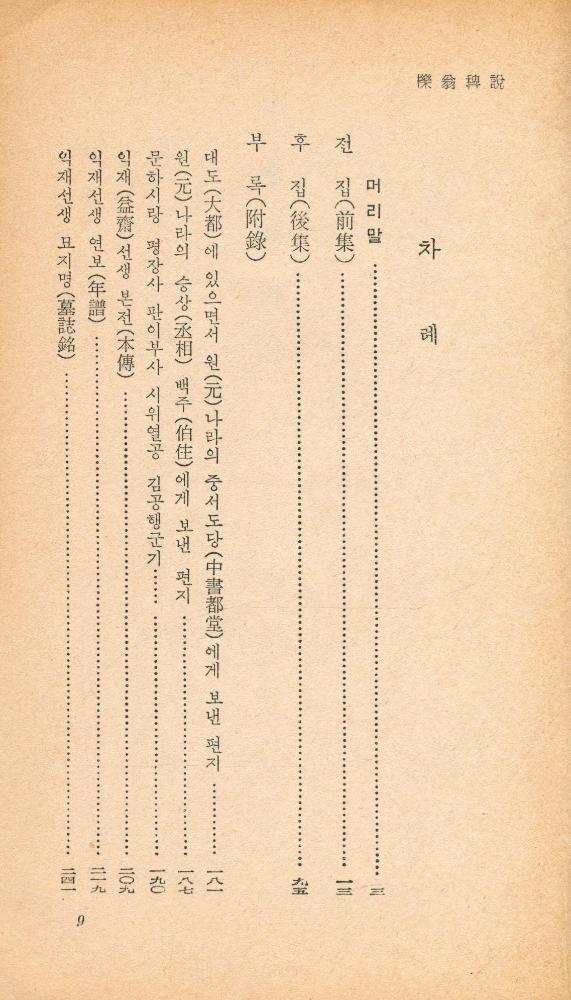 櫟翁稗說
차 례
머리말 …… 三
전 집(前集) …… 一三
후 집(後集) …… 九五
부 록(附錄)
대도(大都)에 있으면서 원(元)나라의 중서도당(中書都堂)에게 보낸 편지 …… 一八一
원(元)나라의 승상(丞相) 백주(伯住)에게 보낸 편지 …… 一八七
문하시랑 평장사 판이부사 시위열공 김공행군기 …… 一九〇
익재(益齋)선생 본전(本傳) …… 二〇九
익재선생 연보(年譜) …… 二一九
익재선생 묘지명(墓誌銘) …… 二四一
9